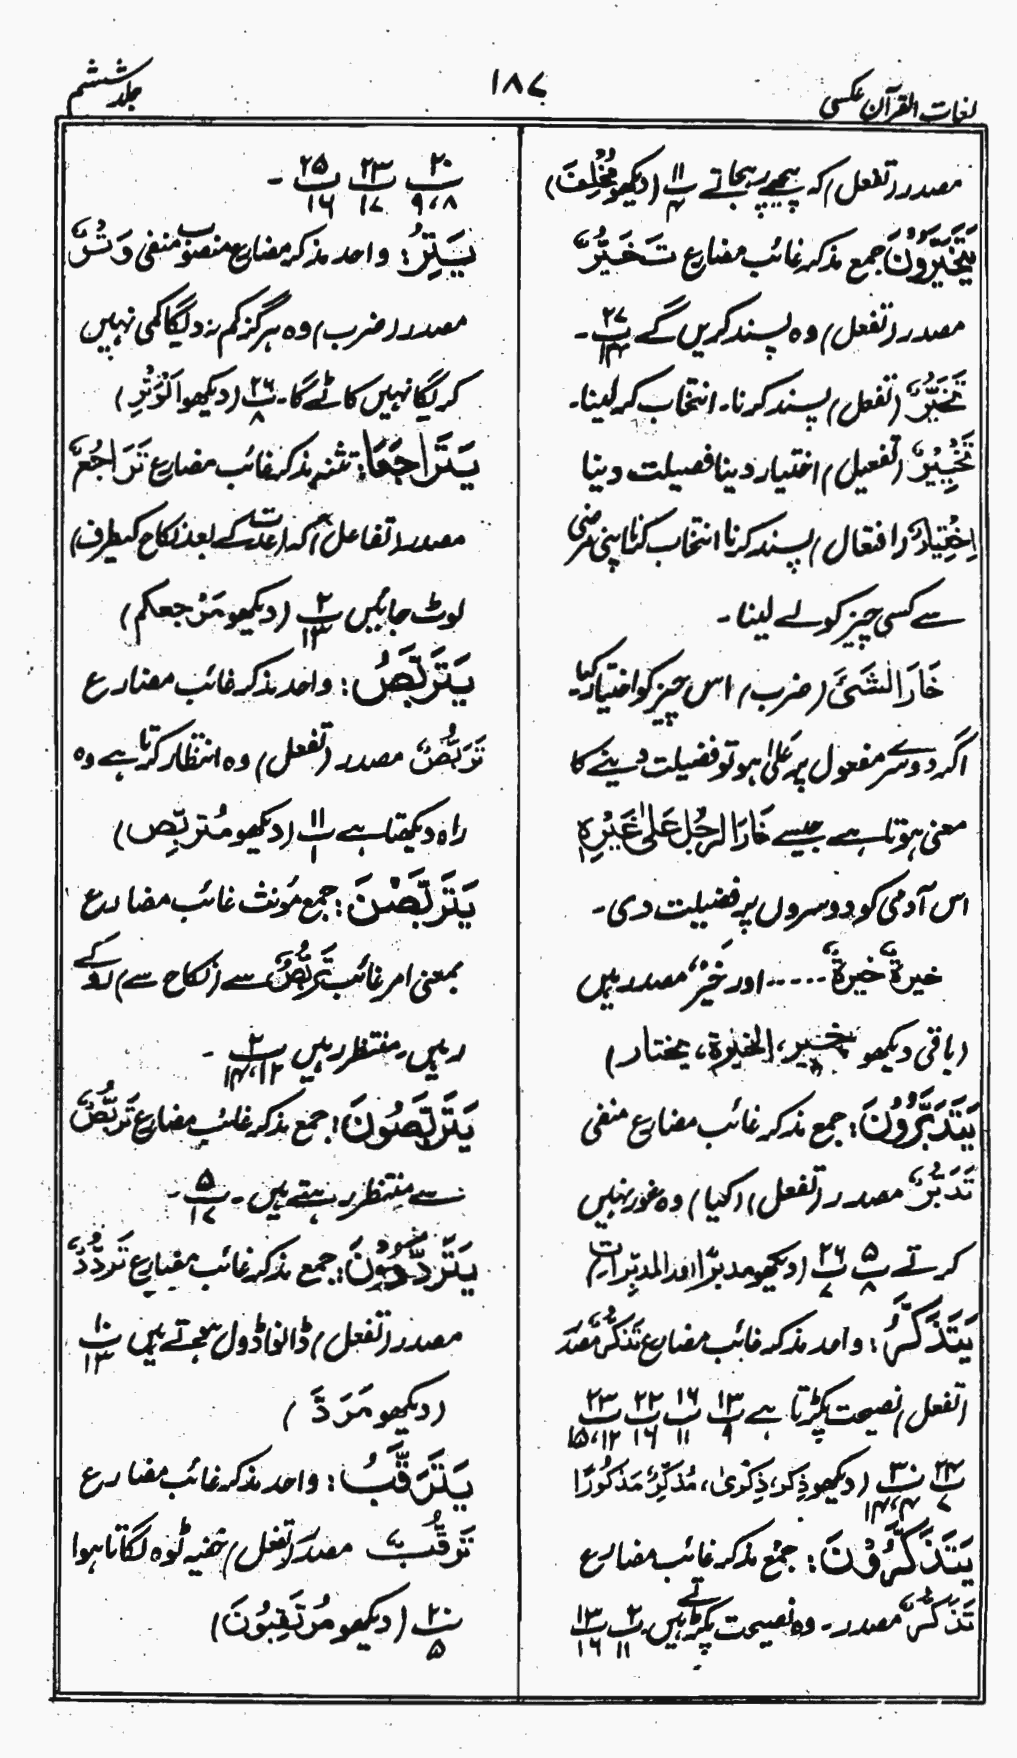 لغات القرآن عکسی
۱۸۷
جلد ششم
مصدر (تفعل) کہ پیچھے رہجاتے پ۱۱/۴ (دیکھو مُخْلِفَ)
یَتَخَیَّرُوْنَ جمع مذکر غائب مضارع تَخَیُّرٌ
مصدر (تفعل) وہ پسند کریں گے پ۲۷/۱۴ ۔
تَخَیُّرٌ (تفعل) پسند کرنا۔ انتخاب کر لینا۔
تَخْیِیْرٌ (تفعیل) اختیار دینا فضیلت دینا
اِخْتِیَارٌ (افتعال) پسند کرنا انتخاب کرنا اپنی مرضی
سے کسی چیز کو لے لینا ۔
خَارَ الشَّیْءَ (ضرب) اس چیز کو اختیار کیا۔
اگر دوسرے مفعول پر عَلٰی ہو تو فضیلت دینے کا
معنی ہوتا ہے جیسے خَارَ الرَّجُلَ عَلٰی غَیْرِہٖ
اس آدمی کو دوسروں پر فضیلت دی۔
خیرۃٌ خیرۃٌ ..... اور خَیْرٌ مصدر ہیں
(باقی دیکھو خیر، الخیرۃ، یختار)
یَتَدَبَّرُوْنَ: جمع مذکر غائب مضارع منفی
تَدَبُّرٌ مصدر (تفعل) (کیا) وہ غور نہیں
کرتے پ۵/۸ پ۲۶/۷ (دیکھو مدبرًا اور المدبِّرات)
یَتَذَکَّرُ: واحد مذکر غائب مضارع تَذَکُّرٌ مصدر
(تفعل) نصیحت پکڑتا ہے پ۱۳/۹ پ۱۶/۱۱ پ۲۲/۱۶ پ۲۳/۱۵،۱۲
پ۲۴/۷ پ۳۰/۱۴،۴ (دیکھو ذِکر، ذِکْرٰی، مُذَکِّرٌ مَذْکُورًا
یَتَذَکَّرُوْنَ: جمع مذکر غائب مضارع
تَذَکُّرٌ مصدر۔ وہ نصیحت پکڑتے ہیں۔ پ۲/۱۱ پ۱۳/۱۶
پ۲۰/۹،۸ پ۲۳/۱۷ پ۲۵/۱۶ ۔
یَتِرَ: واحد مذکر مضارع منصوب منفی وَتْرٌ
مصدر (ضرب) وہ ہرگز کم نہ دیگا کمی نہیں
کریگا نہیں کاٹے گا۔ پ۲۶/۸ (دیکھو اَلْوَتْرِ)
یَتَرَاجَعَا: تثنیہ مذکر غائب مضارع تَرَاجُعٌ
مصدر (تفاعل) کہ (عدت کے بعد نکاح کیطرف)
لوٹ جائیں پ۲/۱۳ (دیکھو مَرْجعکم)
یَتَرَبَّصُ: واحد مذکر غائب مضارع
تَرَبُّصٌ مصدر (تفعل) وہ انتظار کرتا ہے وہ
راہ دیکھتا ہے پ۱۱/۱ (دیکھو مُتَرَبِّص)
یَتَرَبَّصْنَ: جمع مؤنث غائب مضارع
بمعنی امر غائب تَرَبُّصٌ سے (نکاح سے) روکے
رہیں۔ منتظر رہیں پ۲/۱۴،۱۲ ۔
یَتَرَبَّصُوْنَ: جمع مذکر غائب مضارع تَرَبُّصٌ
سے منتظر رہتے ہیں۔ پ۵/۱۷ ۔
یَتَرَدَّدُوْنَ: جمع مذکر غائب مضارع تَرَدُّدٌ
مصدر (تفعل) ڈانواڈول ہوتے ہیں پ۱۰/۱۳
(دیکھو مَرَدَّ)
یَتَرَقَّبُ: واحد مذکر غائب مضارع
تَرَقُّبٌ مصدر (تفعل) خفیہ ٹوہ لگاتا ہوا
پ۲۰/۵ (دیکھو مُرْتَقِبُوْنَ)